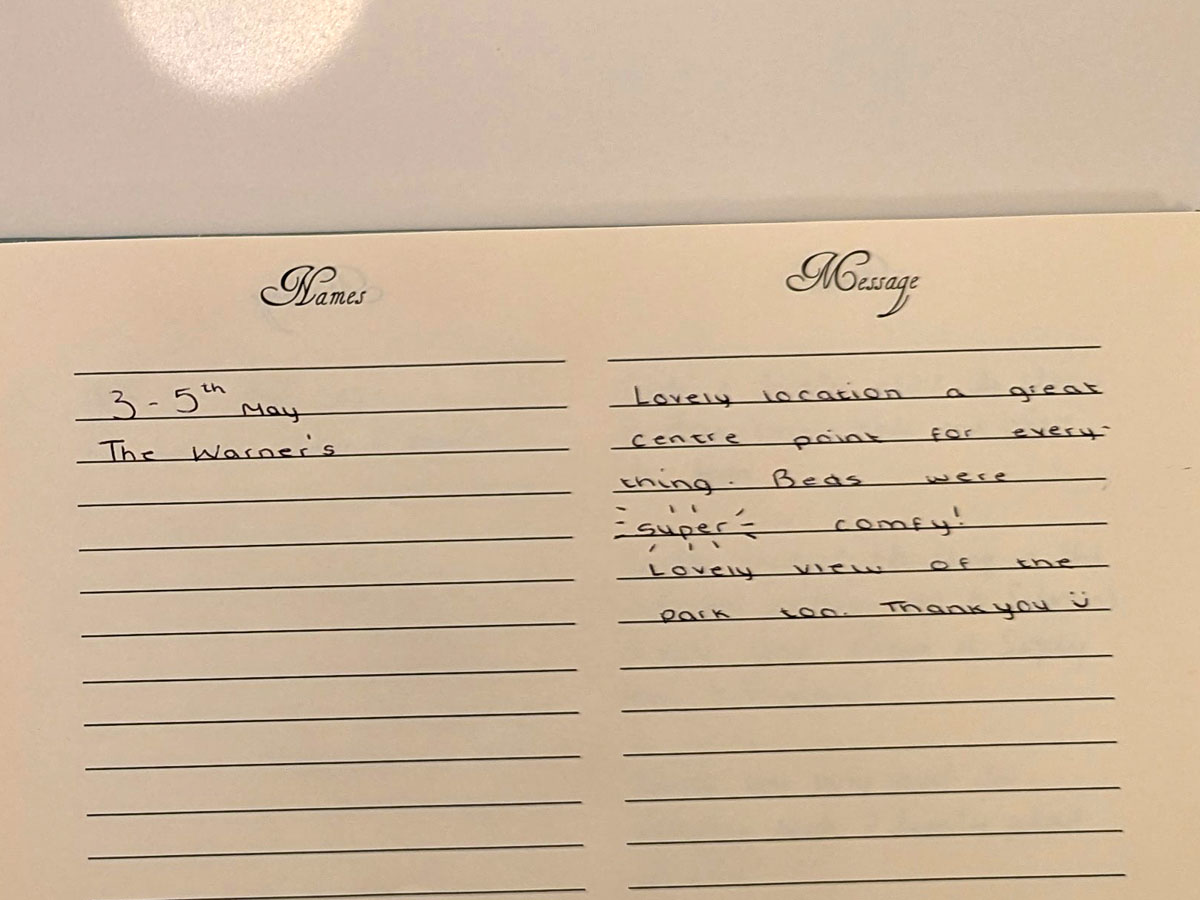 Names
Message
3 - 5th May
The Warner's
Lovely location a great
centre point for every-
thing. Beds were
super comfy!
Lovely view of the
park too. Thankyou ü